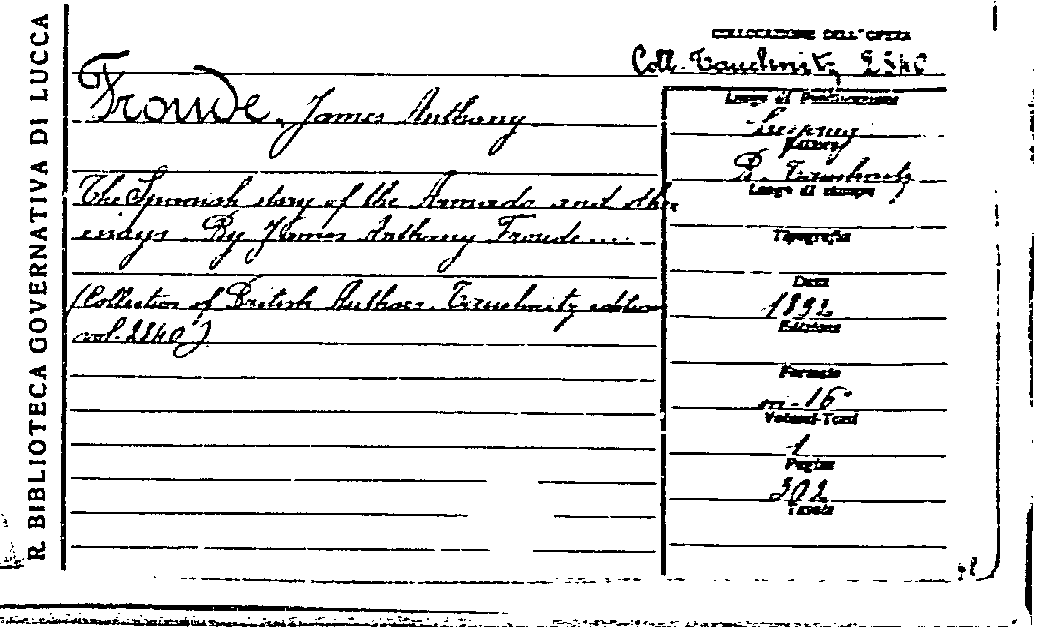 R. BIBLIOTECA GOVERNATIVA DI LUCCA
COLLOCAZIONE DELL'OPERA
Coll. Tauchnitz 2840
Froude, James Anthony
The Spanish story of the Armada and other
essays. By James Anthony Froude...
(Collection of British Authors. Tauchnitz edition
vol. 2840°)
Luogo di Pubblicazione
Editore
B. Tauchnitz
Luogo di stampa
Tipografia
Data
1892
Edizione
Formato
in-16°
Volumi-Tomi
1
Pagine
302
Tavole